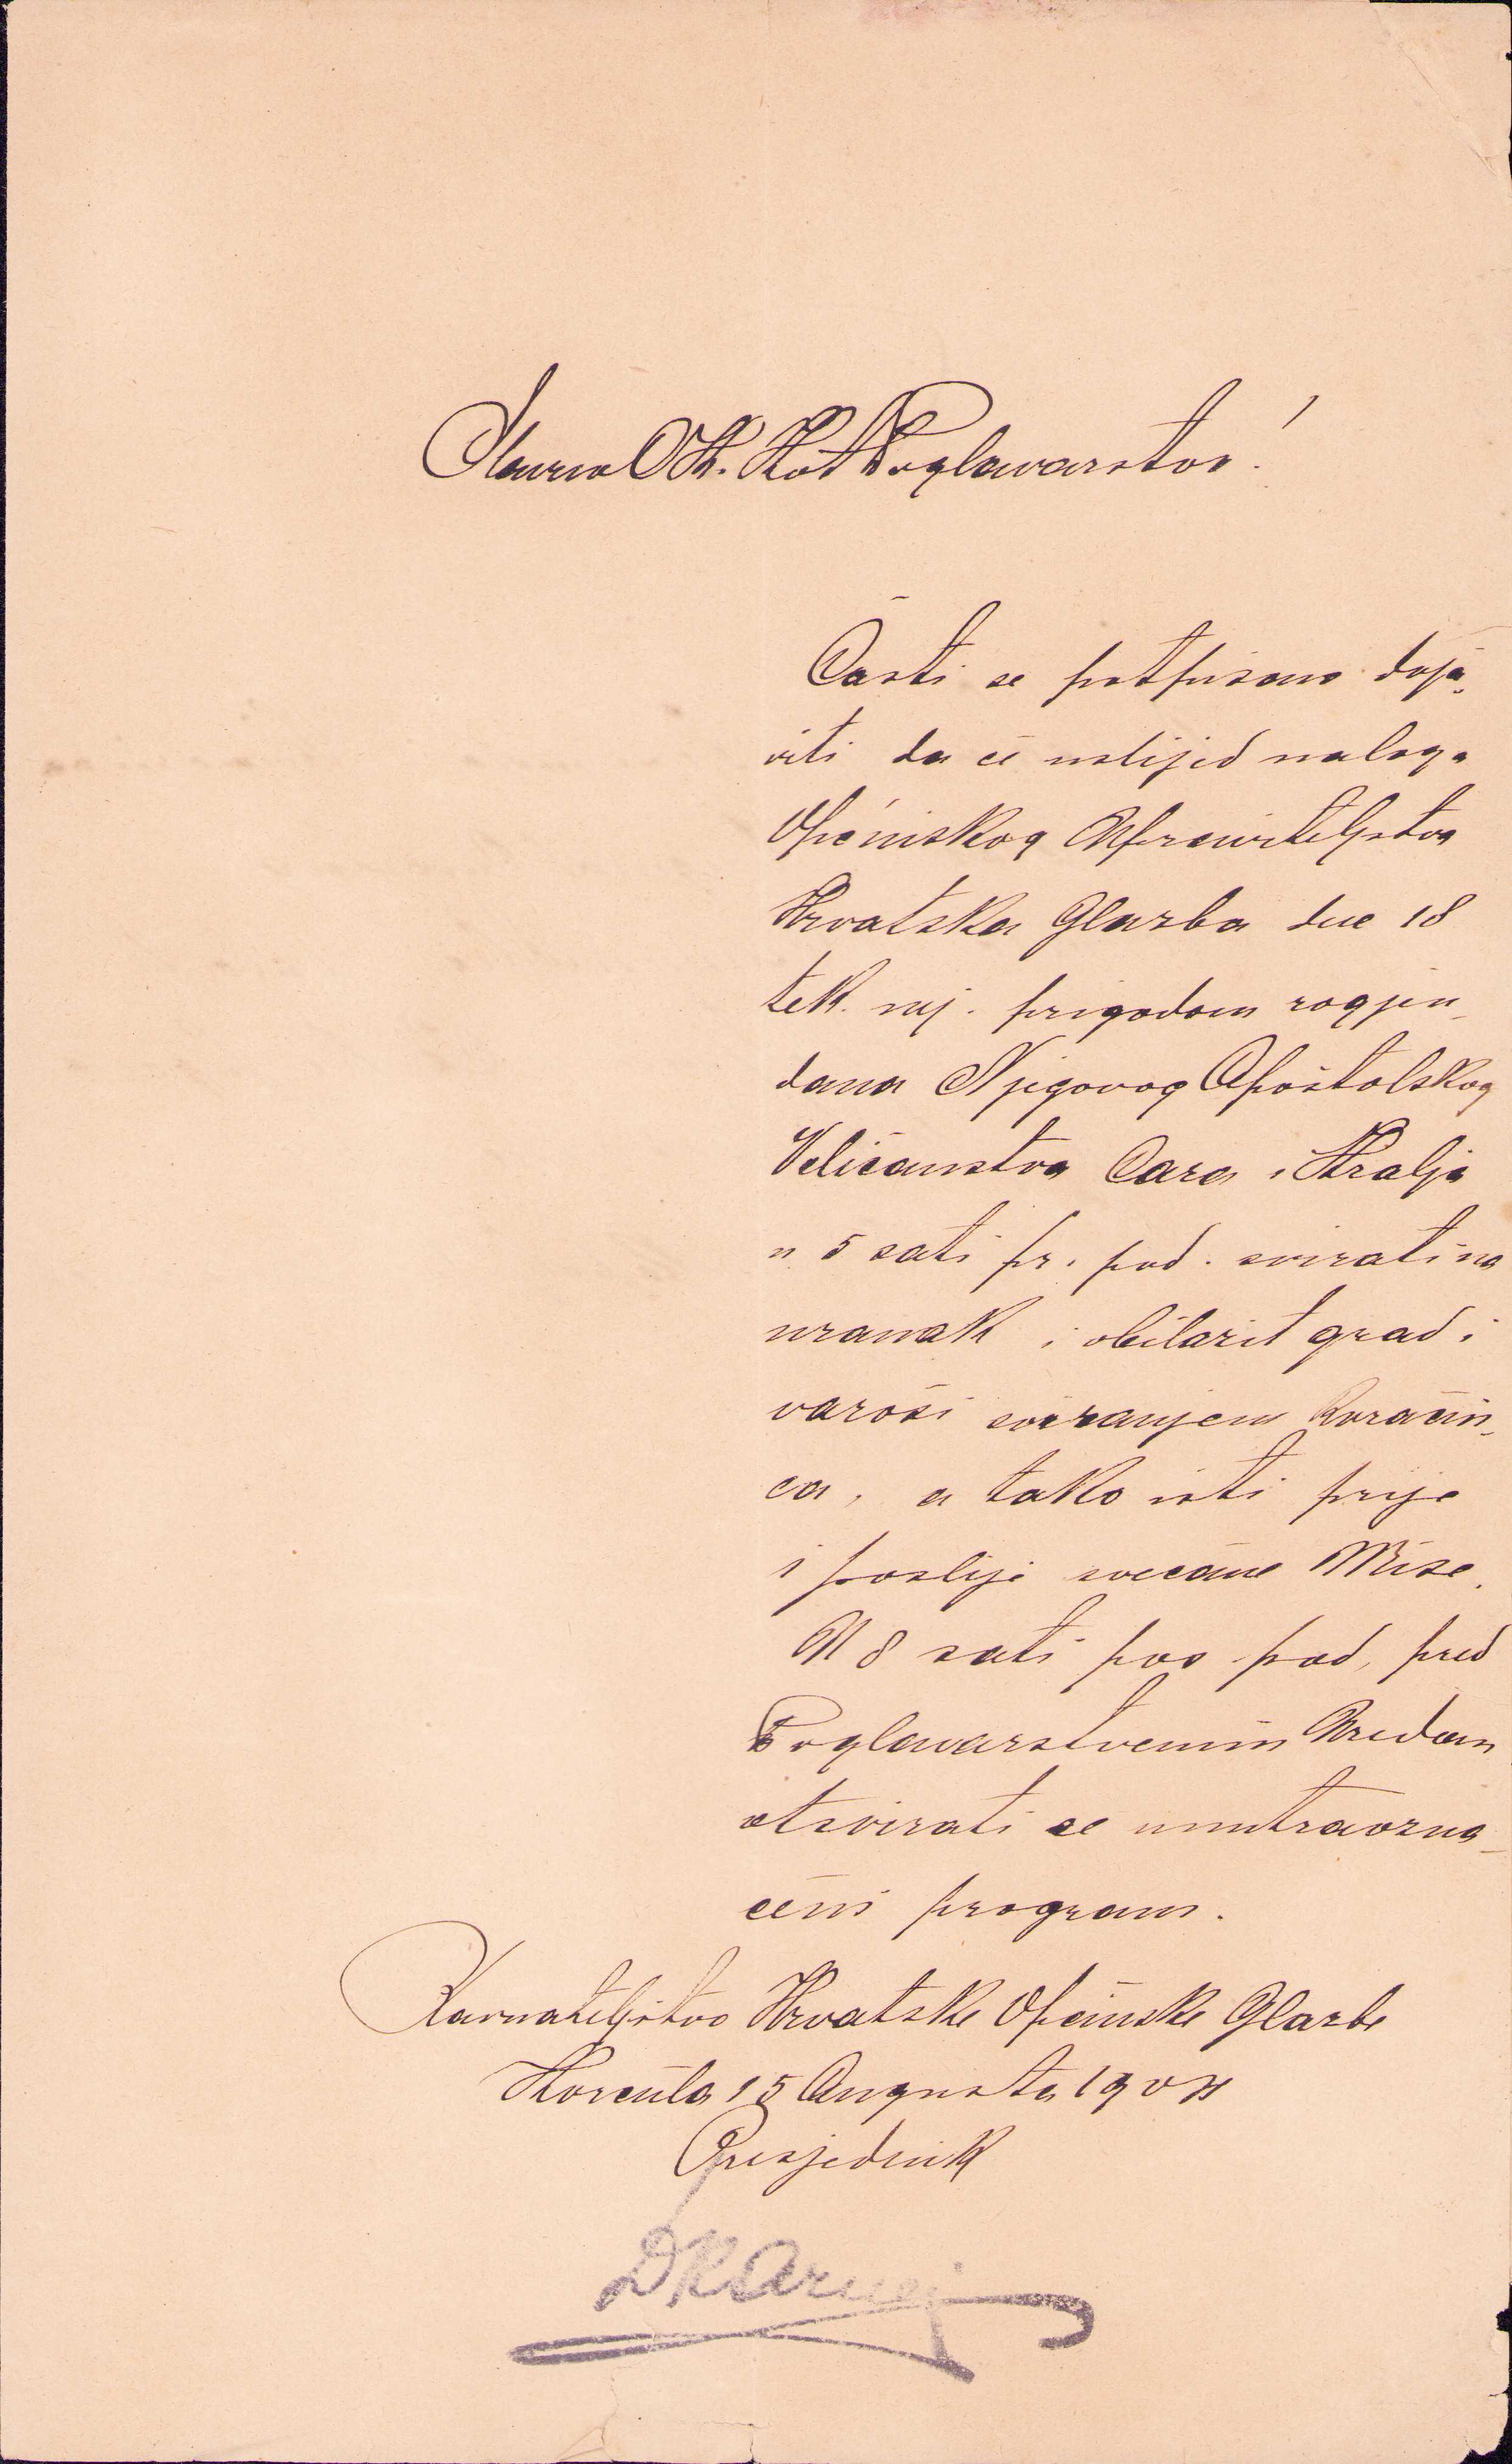 Slavno C.K. Kot. Poglavarstvo!
Časti se potpisano doja-
viti da će uslijed naloga
Općinskog Upraviteljstva
Hrvatska Glazba dne 18
tek. mj. prigodom rogjen-
dana Njegovog Apoštolskog
Veličanstva Cara i Kralja
u 5 sati pr. pod. svirati na
uranak i obilazit grad i
varoši sviranjem koračni-
ca, a tako isti prije
i poslije svečane Mise.
U 8 sati pos. pod. pred
Poglavarstvenim Uredom
otsvirati će unutraozna-
čeni program.
Ravnateljstvo Hrvatske Općinske Glazbe
Korčula 15 Augusta 190
Presjednik